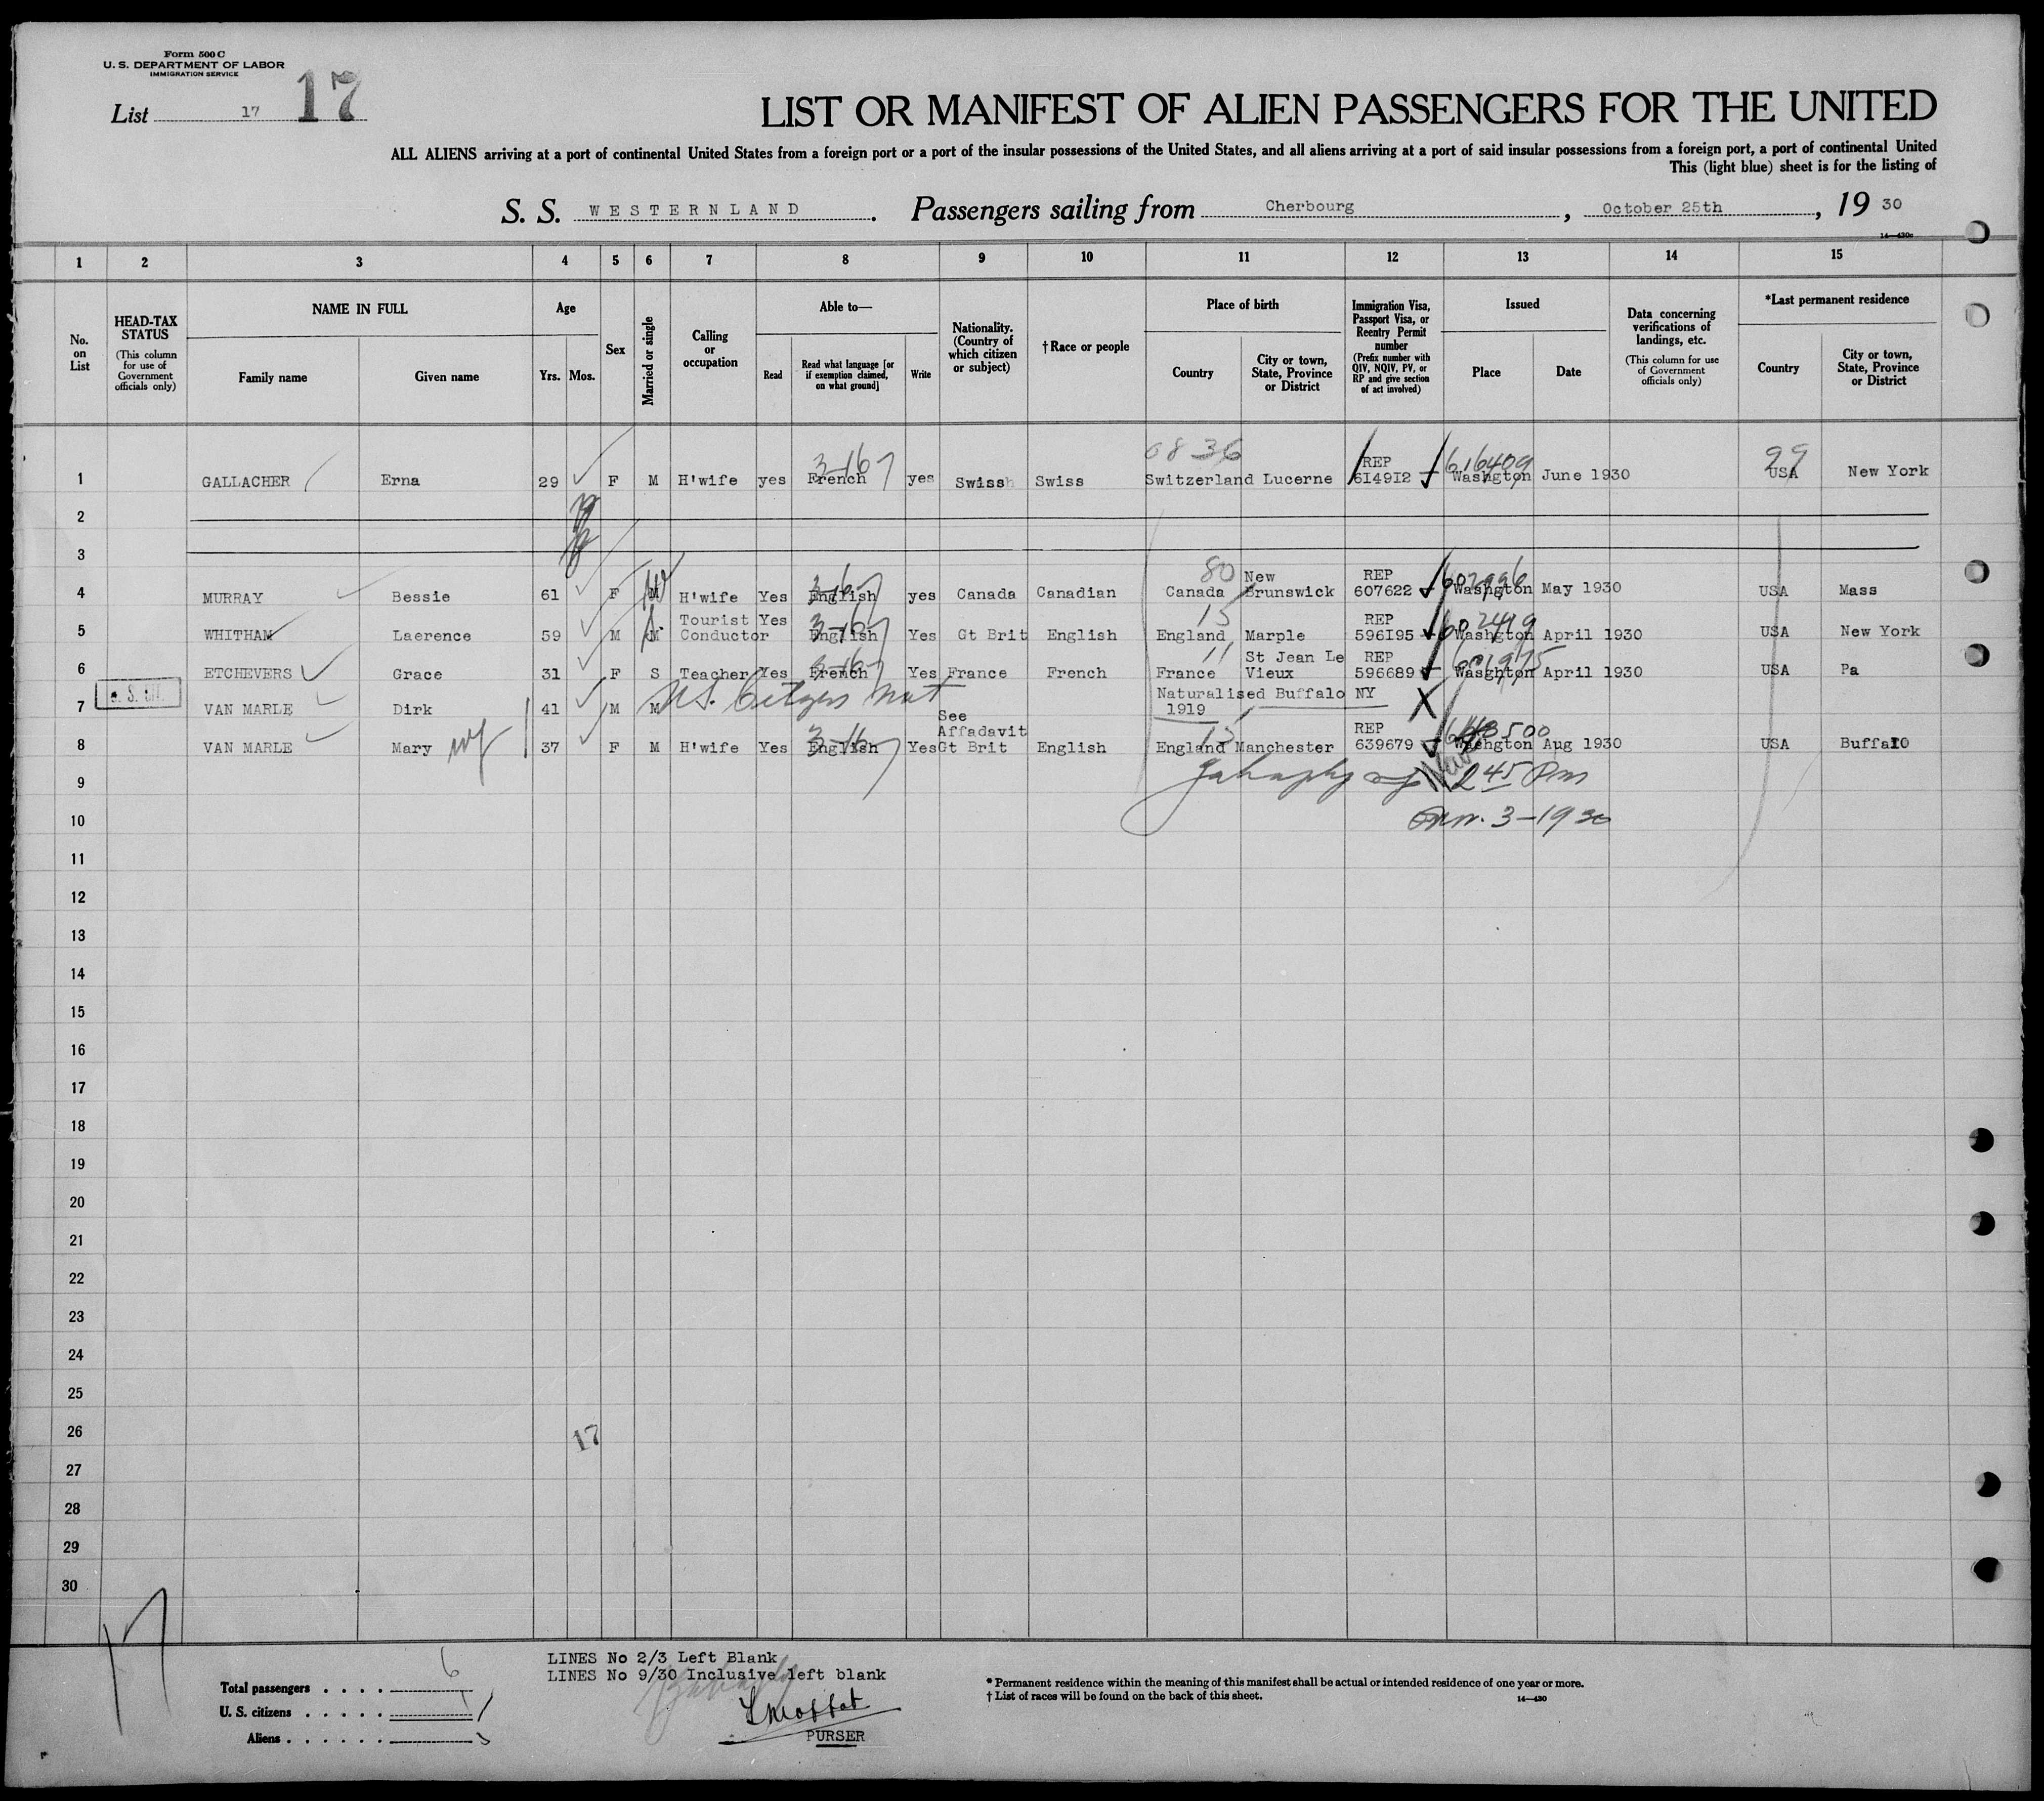 Form 500 C
U. S. DEPARTMENT OF LABOR
IMMIGRATION SERVICE
List 17 17
LIST OR MANIFEST OF ALIEN PASSENGERS FOR THE UNITED
ALL ALIENS arriving at a port of continental United States from a foreign port or a port of the insular possessions of the United States, and all aliens arriving at a port of said insular possessions from a foreign port, a port of continental United
This (light blue) sheet is for the listing of
S. S. WESTERNLAND . Passengers sailing from Cherbourg , October 25th , 19 30
14—430c
1 2 3 4 5 6 7 8 9 10 11 12 13 14 15
No. on List
HEAD-TAX STATUS (This column for use of Government officials only)
NAME IN FULL Family name Given name
Age Yrs. Mos.
Sex
Married or single
Calling or occupation
Able to— Read Read what language [or if exemption claimed, on what ground] Write
Nationality. (Country of which citizen or subject)
†Race or people
Place of birth Country City or town, State, Province or District
Immigration Visa, Passport Visa, or Reentry Permit number (Prefix number with QIV, NQIV, PV, or RP and give section of act involved)
Issued Place Date
Data concerning verifications of landings, etc. (This column for use of Government officials only)
*Last permanent residence Country City or town, State, Province or District
6836 29
3-167 REP 616409
1 GALLACHER Erna 29 F M H'wife yes French yes Swiss Swiss Switzerland Lucerne 6I49I2 Washgton June 1930 USA New York
2
3
80 New REP
4 MURRAY Bessie 61 F M H'wife Yes English yes Canada Canadian Canada Brunswick 607622 Washgton May 1930 USA Mass
Tourist Yes 15 REP 602419
5 WHITHAM Laerence 59 M M Conductor English Yes Gt Brit English England Marple 596I95 Washgton April 1930 USA New York
11 St Jean Le REP 601975
6 ETCHEVERS Grace 31 F S Teacher Yes French Yes France French France Vieux 596689 Wasghton April 1930 USA Pa
U.S. Citizen Nat Naturalised Buffalo NY
7 VAN MARLE Dirk 41 M M 1919 X
See Affadavit REP
8 VAN MARLE Mary wf 37 F M H'wife Yes English Yes Gt Brit English England Manchester 639679 Washgton Aug 1930 USA Buffalo
9 2 45 Pm
10 3-1930
11
12
13
14
15
16
17
18
19
20
21
22
23
24
25
26 17
27
28
29
30
17
LINES No 2/3 Left Blank
LINES No 9/30 Inclusive left blank
Total passengers . . . . 6
U. S. citizens . . . . . 1
Aliens . . . . . . 5
PURSER
* Permanent residence within the meaning of this manifest shall be actual or intended residence of one year or more.
† List of races will be found on the back of this sheet.
14—430